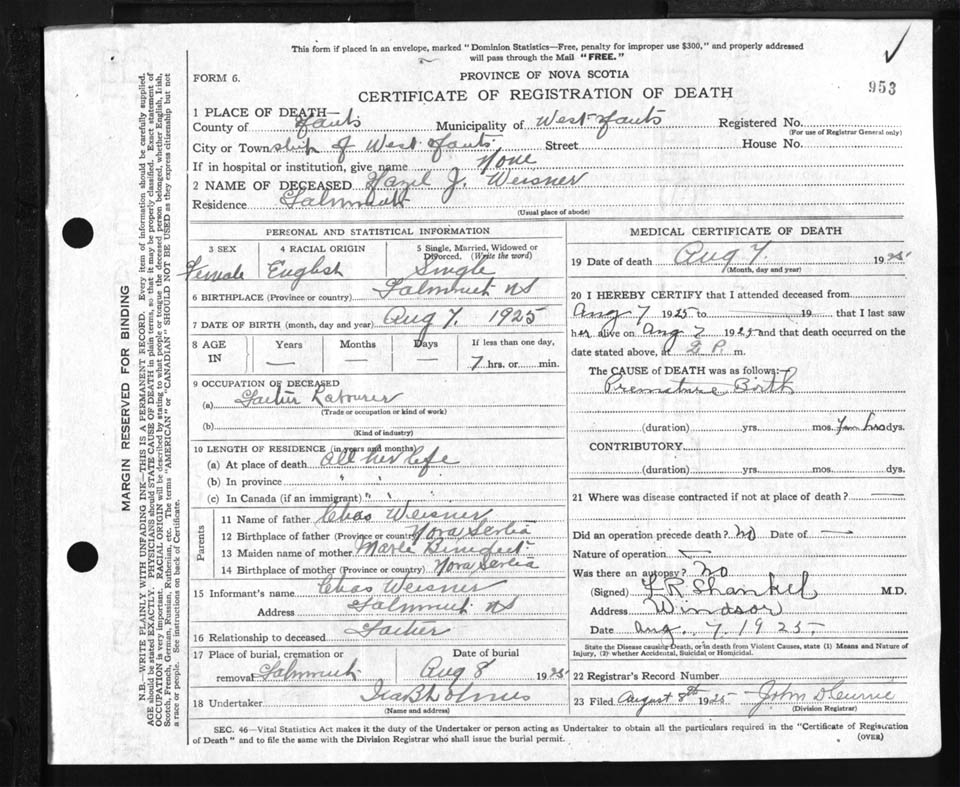 This form if placed in an envelope, marked "Dominion Statistics—Free, penalty for improper use $300," and properly addressed
will pass through the Mail "FREE."
FORM 6.
PROVINCE OF NOVA SCOTIA
953
CERTIFICATE OF REGISTRATION OF DEATH
1 PLACE OF DEATH—
County of Hants Municipality of West Hants Registered No.
(For use of Registrar General only)
City or Township of West Hants Street House No.
If in hospital or institution, give name None
2 NAME OF DECEASED Hazel J. Weisner
Residence Falmouth
(Usual place of abode)
PERSONAL AND STATISTICAL INFORMATION
3 SEX 4 RACIAL ORIGIN 5 Single, Married, Widowed or Divorced. (Write the word)
Female English Single
6 BIRTHPLACE (Province or country) Falmouth NS
7 DATE OF BIRTH (month, day and year) Aug 7. 1925
8 AGE IN Years Months Days If less than one day,
— — — 7 hrs. or min.
9 OCCUPATION OF DECEASED
(a) Father Labourer
(Trade or occupation or kind of work)
(b)
(Kind of industry)
10 LENGTH OF RESIDENCE (in years and months)
(a) At place of death All her life
(b) In province " "
(c) In Canada (if an immigrant) " "
Parents
11 Name of father Chas Weisner
12 Birthplace of father (Province or country) Nova Scotia
13 Maiden name of mother Benedict
14 Birthplace of mother (Province or country) Nova Scotia
15 Informant's name Chas Weisner
Address Falmouth NS
16 Relationship to deceased Father
17 Place of burial, cremation or removal Falmouth Date of burial Aug 8 1925
18 Undertaker Ira B Holmes
(Name and address)
MEDICAL CERTIFICATE OF DEATH
19 Date of death Aug 7. 1925
(Month, day and year)
20 I HEREBY CERTIFY that I attended deceased from
Aug 7 1925 to 19 that I last saw
her alive on Aug 7 1925 and that death occurred on
date stated above, at P. m.
The CAUSE of DEATH was as follows:—
Premature Birth
(duration) yrs. mos. hrs dys.
CONTRIBUTORY.
(duration) yrs. mos. dys.
21 Where was disease contracted if not at place of death? —
Did an operation precede death? No Date of —
Nature of operation —
Was there an autopsy? No
(Signed) Shankel M.D.
Address Windsor
Date Aug. 7. 1925
State the Disease causing Death, or in death from Violent Causes, state (1) Means and Nature of
Injury, (2) whether Accidental, Suicidal or Homicidal.
22 Registrar's Record Number
23 Filed August 8th 1925 John D Currie
(Division Registrar)
SEC. 46—Vital Statistics Act makes it the duty of the Undertaker or person acting as Undertaker to obtain all the particulars required in the "Certificate of Registration
of Death" and to file the same with the Division Registrar who shall issue the burial permit. (OVER)
MARGIN RESERVED FOR BINDING
N.B.—WRITE PLAINLY WITH UNFADING INK—THIS IS A PERMANENT RECORD. Every item of information should be carefully supplied.
AGE should be stated EXACTLY. PHYSICIANS should STATE CAUSE OF DEATH in plain terms, so that it may be properly classified. Exact statement of
OCCUPATION is very important. RACIAL ORIGIN will be described by stating to what people or tongue the deceased person belonged, whether English, Irish,
Scotch, French, German, Russian, Ruthenian, etc. The terms "AMERICAN" or "CANADIAN" SHOULD NOT BE USED as they express citizenship but not
a race or people. See instructions on back of Certificate.